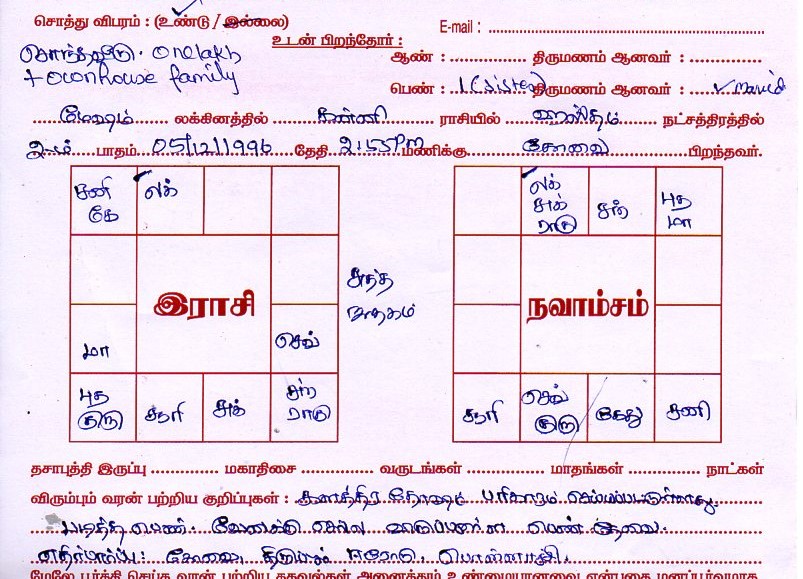 சொத்து விபரம் : (உண்டு / இல்லை)
E-mail :
onelakh
+ ownhouse family
உடன் பிறந்தோர் :
ஆண் : திருமணம் ஆனவர் :
பெண் : 1 (sister) திருமணம் ஆனவர் : ✓ married
மேஷம் லக்கினத்தில் கன்னி ராசியில் ஹஸ்தம் நட்சத்திரத்தில்
2-ம் பாதம் 05/12/1996 தேதி 2:55 PM மணிக்கு கோவை பிறந்தவர்.
சனி கே
லக்
இராசி
மா
செவ்
புத குரு
சூரி
சுக்
சந் ராகு
சுத்த
ஜாதகம்
லக் சுக் ராகு
சந்
புத மா
நவாம்சம்
சூரி
செவ் குரு
கேது
சனி
தசாபுத்தி இருப்பு மகாதிசை வருடங்கள் மாதங்கள் நாட்கள்
விரும்பும் வரன் பற்றிய குறிப்புகள் : களத்திர தோஷம் பரிகாரம்
படித்த பெண். வேலைக்கு செல்ல பெண் தேவை.
எதிர்பார்ப்பு: கோவை, திருப்பூர் ஈரோடு, பொள்ளாச்சி.
மேலே பூர்த்தி செய்த வரன் பற்றிய தகவல்கள் அனைத்தும் உண்மையானவை என்பதை மனப்பூர்வமாக